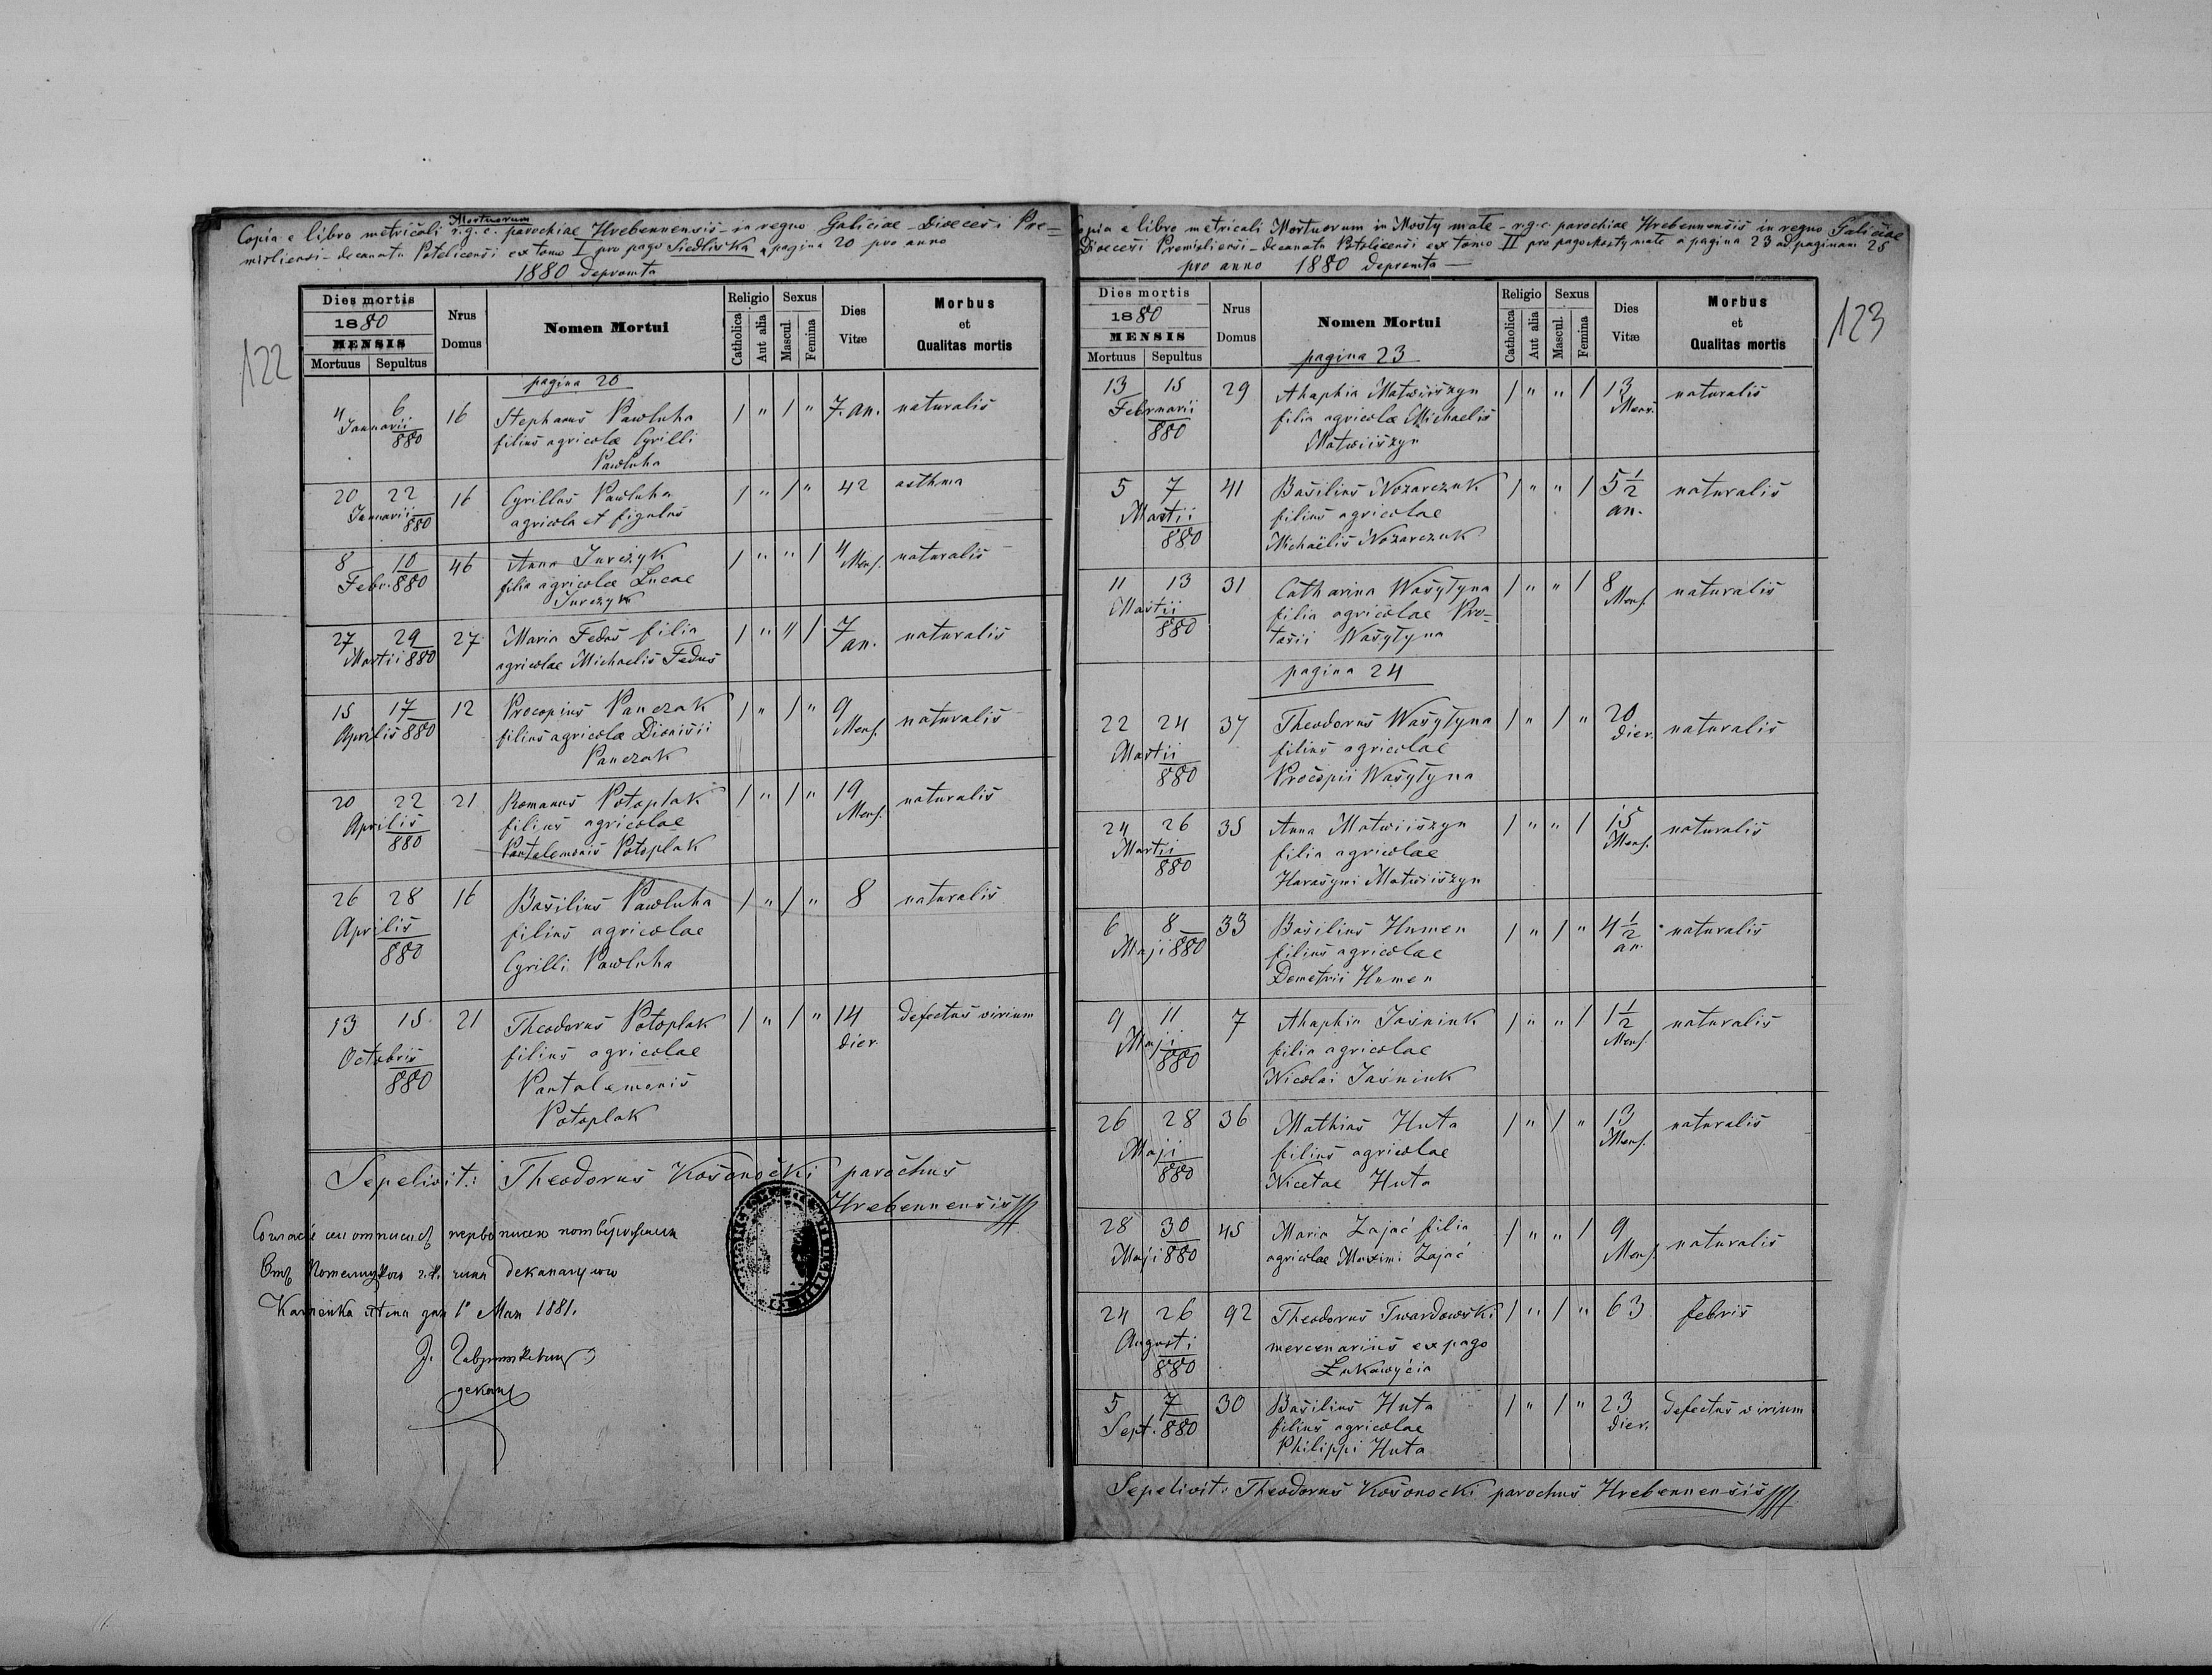 Copia e libro metricali Mortuorum r.g.c. parochiae Hrebennensis in regno Galiciae Dioecesi Pre=
misliensi decanatu Potelicensi ex tomo I pro pago Siedliska a pagina 20 pro anno
1880 depromta
122
Dies mortis
1880
MENSIS
Mortuus Sepultus
Nrus Domus
Nomen Mortui
Religio
Catholica
Aut alia
Sexus
Mascul.
Femina
Dies Vitæ
Morbus
et
Qualitas mortis
pagina 20
4 6 Januarii 880 16 Stephanus Pawluha / " / " 7. an. naturalis
filius agricolae Cyrilli
Pawluha
20 22 Januarii 880 16 Cyrillus Pawluha / " / " 42 asthma
agricola et figulus
8 10 Febr. 880 46 Anna Jurczyk / " " / 4 Mens. naturalis
filia agricolae Lucae
Jurczyk
27 29 Martii 880 27 Maria Fedus filia / " " / 7 an. naturalis
agricolae Michaelis Fedus
15 17 Aprilis 880 12 Procopius Panczak / " / " 9 Mens. naturalis
filius agricolae Dionisii
Panczak
20 22 Aprilis 880 21 Romanus Potoplak / " / " 19 Mens. naturalis
filius agricolae
Pantalemonis Potoplak
26 28 Aprilis 880 16 Basilius Pawluha / " / " 8 naturalis
filius agricolae
Cyrilli Pawluha
13 15 Octobris 880 21 Theodorus Potoplak / " / " 14 dier. defectus virium
filius agricolae
Pantalemonis
Potoplak
Sepelivit: Theodorus Kosonocki parochus
Hrebennensis
декан
1881.
Copia e libro metricali Mortuorum in Mosty małe - r.g.c. parochiae Hrebennensis in regno Galiciae
Dioecesi Premisliensi - decanatu Potelicensi ex tomo II pro pago Mosty małe a pagina 23 ad paginam 25
pro anno 1880 depromta
123
Dies mortis
1880
MENSIS
Mortuus Sepultus
Nrus Domus
Nomen Mortui
Religio
Catholica
Aut alia
Sexus
Mascul.
Femina
Dies Vitæ
Morbus
et
Qualitas mortis
pagina 23
13 15 Februarii 880 29 Ahaphia Matwiiszyn / " " / 13 Mens. naturalis
filia agricolae Michaelis
Matwiiszyn
5 7 Martii 880 41 Basilius Nozarczuk / " " / 5 1/2 an. naturalis
filius agricolae
Michaëlis Nozarczuk
11 13 Martii 880 31 Catharina Wasyłyna / " " / 8 Mens. naturalis
filia agricolae Pro=
tasii Wasyłyna
pagina 24
22 24 Martii 880 37 Theodorus Wasyłyna / " / " 20 dier. naturalis
filius agricolae
Procopii Wasyłyna
24 26 Martii 880 35 Anna Matwiiszyn / " " / 15 Mens. naturalis
filia agricolae
Harasymi Matwiiszyn
6 8 Maji 880 33 Basilius Humen / " / " 4 1/2 an. naturalis
filius agricolae
Demetrii Humen
9 11 Maji 880 7 Ahaphia Jaśniuk / " " / 1 1/2 Mens. naturalis
filia agricolae
Nicolai Jaśniuk
26 28 Maji 880 36 Mathias Huta / " / " 13 Mens. naturalis
filius agricolae
Nicetae Huta
28 30 Maji 880 45 Maria Zając filia / " " / 9 Mens. naturalis
agricolae Maximi Zając
24 26 Augusti 880 92 Theodorus Twardowski / " / " 63 febris
mercenarius ex pago
Łukawycia
5 7 Sept. 880 30 Basilius Huta / " / " 23 dier. defectus virium
filius agricolae
Philippi Huta
Sepelivit: Theodorus Kosonocki parochus Hrebennensis